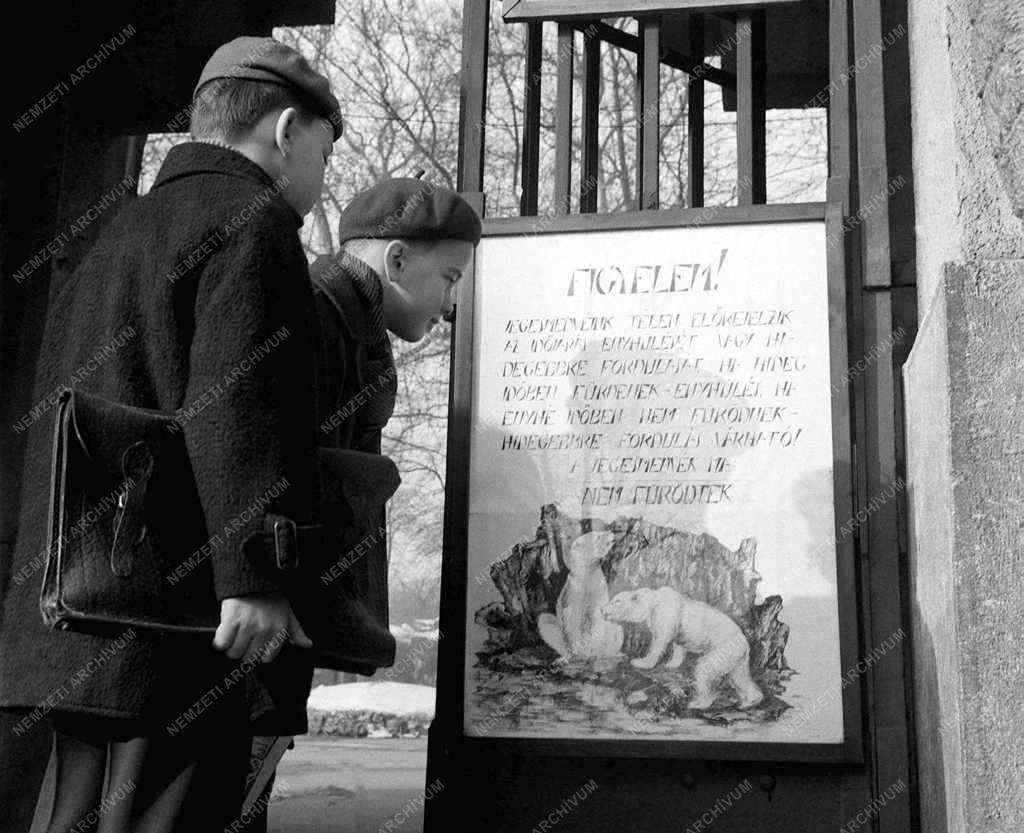 FIGYELEM!
JEGESMEDVÉINK TÉLEN ELŐREJELZIK
AZ IDŐJÁRÁS ENYHÜLÉSÉT VAGY HI-
DEGEBBRE FORDULÁSÁT. HA HIDEG
IDŐBEN FÜRDENEK-ENYHÜLÉS, HA
ENYHE IDŐBEN NEM FÜRÖDNEK-
HIDEGEBBRE FORDULÁS VÁRHATÓ!
A JEGESMEDVÉK MA:
NEM FÜRÖDTEK
NEMZETI ARCHÍVUM